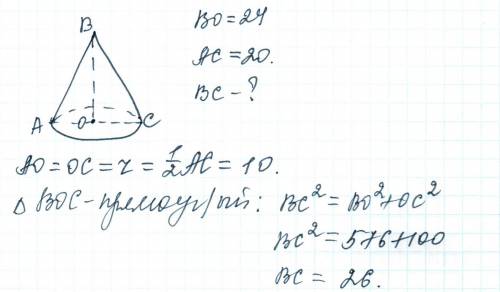 B
A
O
C
BO = 24
AC = 20.
BC - ?
AO = OC = r = 1/2 AC = 10.
Δ BOC - прямоуг/ый: BC² = BO² + OC²
BC² = 576 + 100
BC = 26.